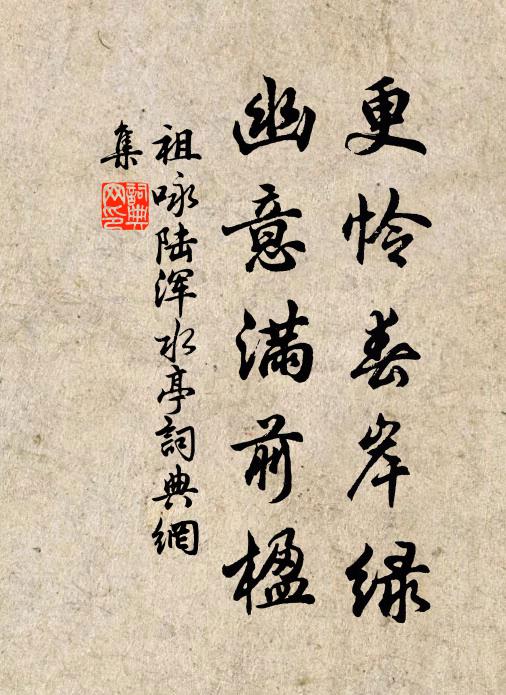 更怜春岸绿
幽意满前楹
祖咏陆浑水亭詞典網
集
詞典
网印